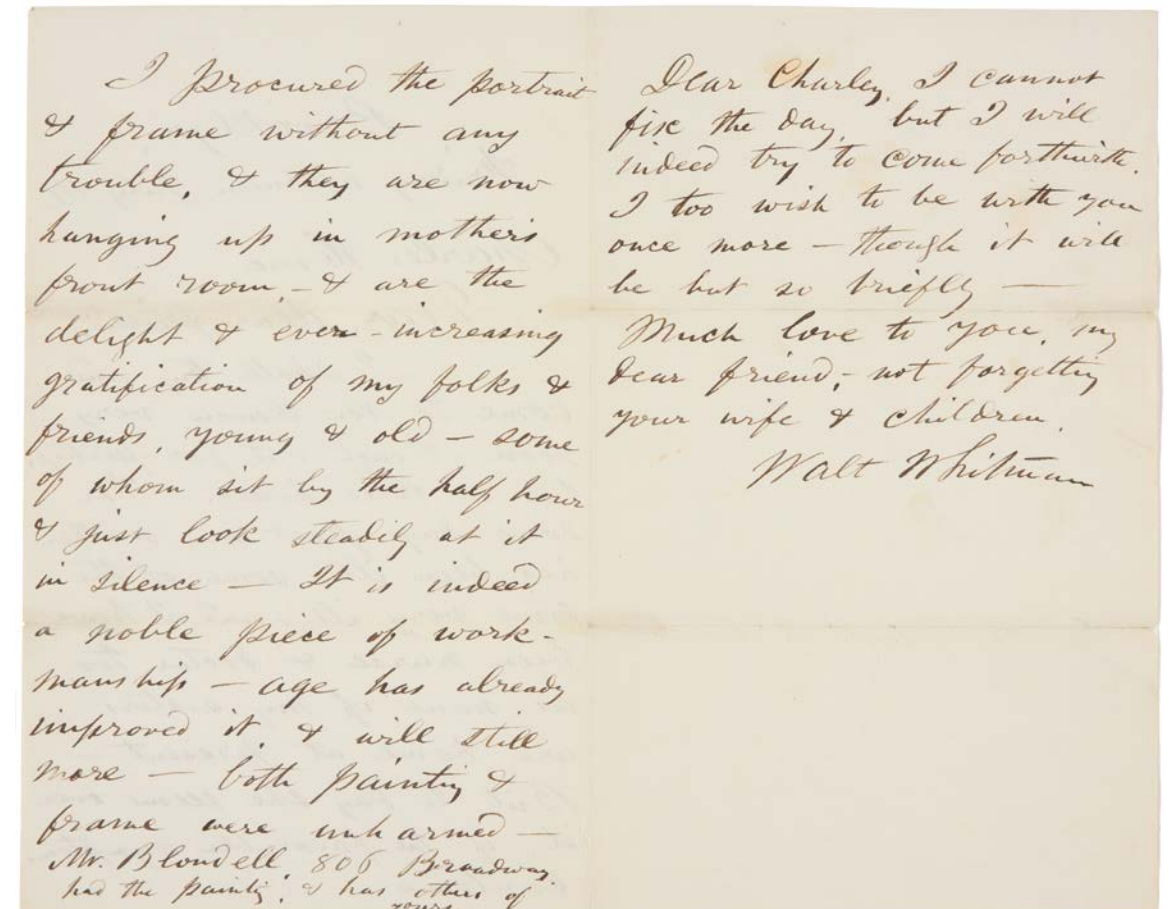 I procured the portrait
& frame without any
trouble, & they are now
hanging up in mothers
front room, – & are the
delight & ever-increasing
gratification of my folks &
friends, young & old – some
of whom sit by the half hour
& just look steadily at it
in silence — It is indeed
a noble piece of work-
manship — age has already
improved it, & will still
more — both painting &
frame were unharmed —
Mr. Blondell, 806 Broadway,
had the painting, & has others of
yours
Dear Charley, I cannot
fix the day, but I will
indeed try to come forthwith.
I too wish to be with you
once more – though it will
be but so briefly —
Much love to you, my
dear friend, – not forgetting
your wife & children.
Walt Whitman